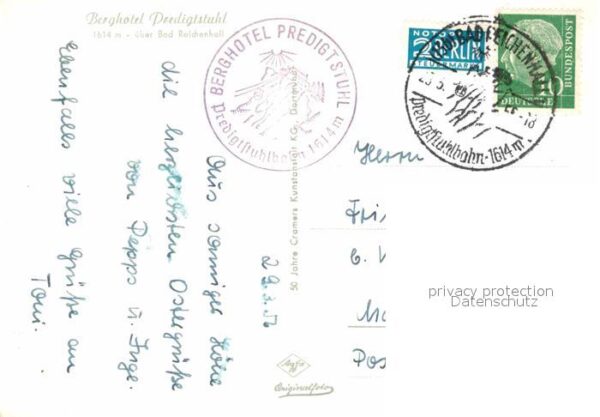 Berghotel Predigtstuhl
1614 m - über Bad Reichenhall
BERGHOTEL PREDIGTSTUHL
Predigtstuhlbahn 1614 m
NOTOPFER
2 BERLIN
STEUERMARKE
BAD REICHENHALL
-18
Predigtstuhlbahn-1614 m
DEUTSCHE
BUNDESPOST
10
Aus sonniger Höhe
die herzlichsten Ostergrüße
von Pepps u. Inge.
Ebenfalls viele Grüße an
Toni.
50 Jahre Cramers Kunstanstalt KG, Dortmund
Herrn
Pos
privacy protection
Datenschutz
Agfa
Originalfoto